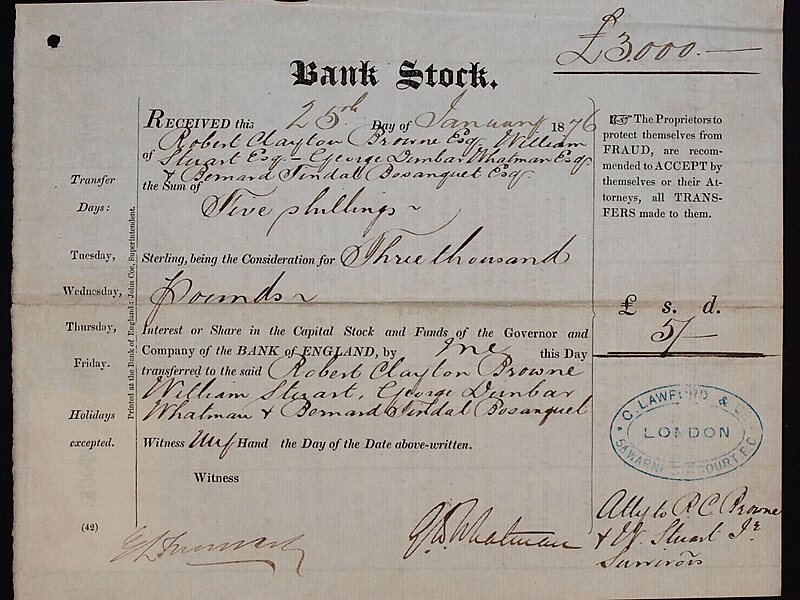 £3000.—
Bank Stock.
RECEIVED this 25th Day of January 1876
of Robert Clayton Browne Esq. William
Stuart Esq – George Dunbar Whatman Esq
& Bernard Tindal Bosanquet Esq
the Sum of
Five shillings
Sterling, being the Consideration for Three thousand
Pounds
Interest or Share in the Capital Stock and Funds of the Governor and
Company of the BANK of ENGLAND, by me this Day
transferred to the said Robert Clayton Browne
William Stuart, George Dunbar
Whatman & Bernard Tindal Bosanquet
Witness my Hand the Day of the Date above-written.
Witness
G. D. Whatman
Transfer
Days:
Tuesday,
Wednesday,
Thursday,
Friday.
Holidays
excepted.
(42)
Printed at the Bank of England: John Coe, Superintendent.
☞ The Proprietors to
protect themselves from
FRAUD, are recom-
mended to ACCEPT by
themselves or their At-
torneys, all TRANS-
FERS made to them.
£ s. d.
5/–
C. LAWFORD &
LONDON
COURT. E.C.
Atty to R C Browne
& W. Stuart Jr
Survivors